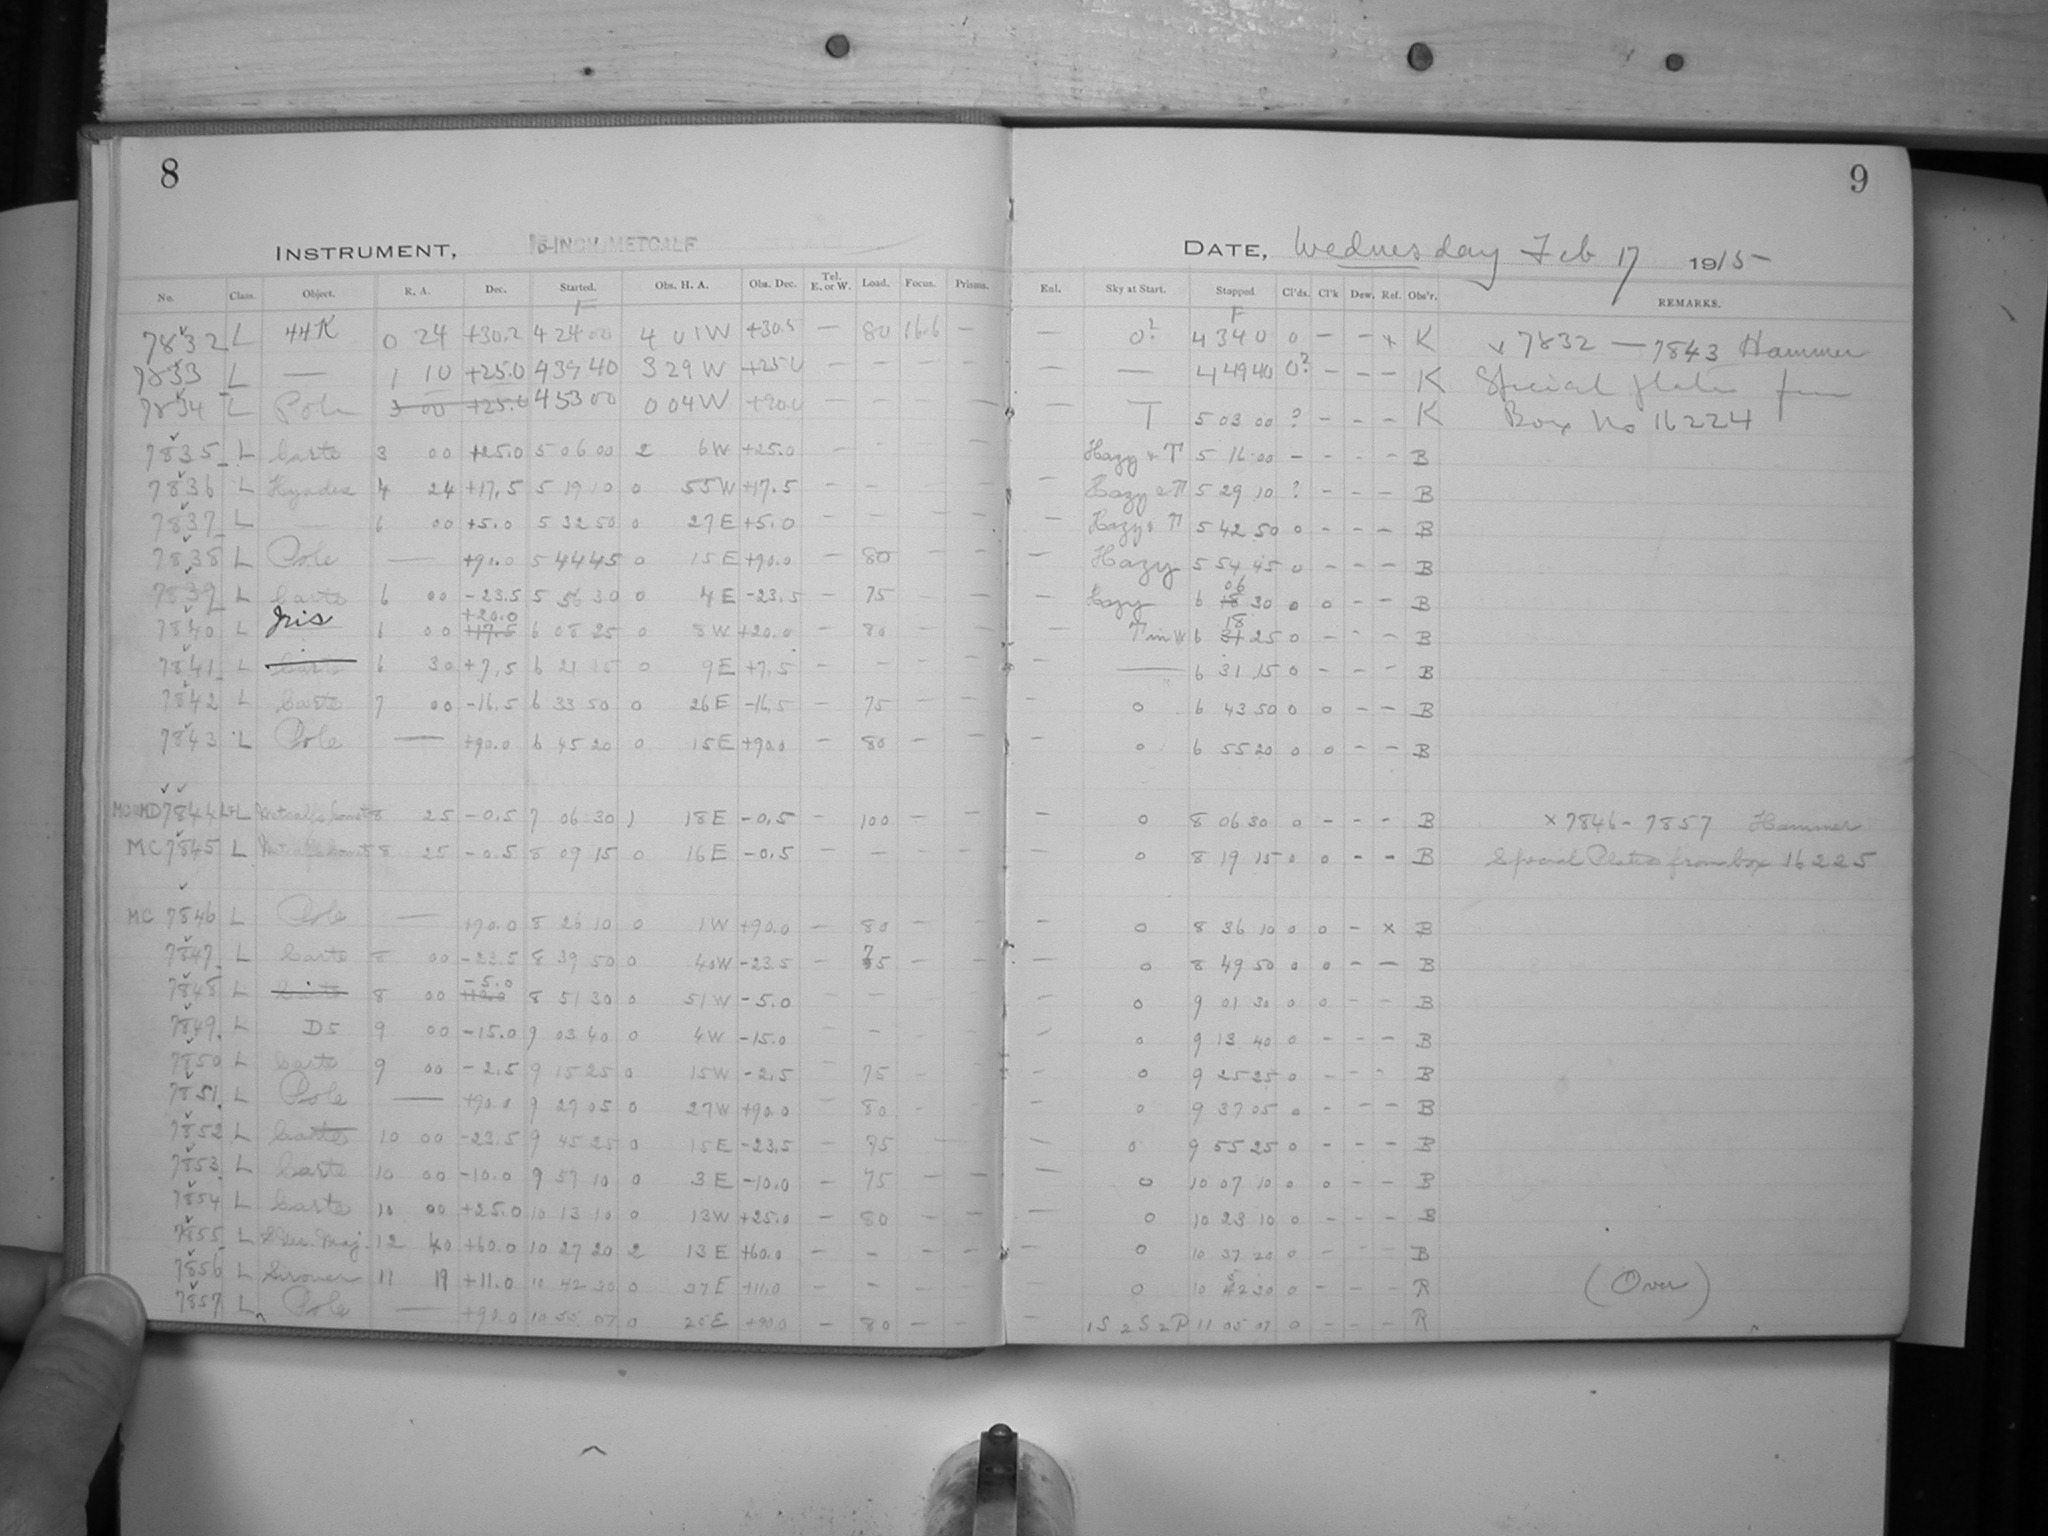 8
INSTRUMENT, 16-INCH METCALF
No. Class. Object. R. A. Dec. Started. Obs. H. A. Obs. Dec. Tel. E. or W. Load. Focus. Prisms.
F
7832 L 44K 0 24 +30.2 4 24 00 4 01 W +30.5 — 80 16.6 —
7833 L — 1 10 +25.0 4 39 40 3 29 W +25.0 — — — —
7834 L Pole 3 00 +25.0 4 53 00 0 04 W +90.0 — — — —
7835 L Carte 3 00 +25.0 5 06 00 2 6 W +25.0 — — — —
7836 L Hyades 4 24 +17.5 5 19 10 0 55 W +17.5 — — — —
7837 L — 6 00 +5.0 5 32 50 0 27 E +5.0 — — — —
7838 L Pole — +90.0 5 44 45 0 15 E +90.0 — 80 — —
7839 L Carte 6 00 -23.5 5 56 30 0 4 E -23.5 — 75 — —
7840 L Iris 6 00 +17.5 +20.0 6 08 25 0 8 W +20.0 — 80 — —
7841 L Carte 6 30 +7.5 6 21 15 0 9 E +7.5 — — — —
7842 L Carte 7 00 -16.5 6 33 50 0 26 E -16.5 — 75 — —
7843 L Pole — +90.0 6 45 20 0 15 E +90.0 — 80 — —
7844 L Metcalfs Comet 8 25 -0.5 7 06 30 1 18 E -0.5 — 100 — —
MC 7845 L Metcalfs Comet 8 25 -0.5 8 09 15 0 16 E -0.5 — — — —
MC 7846 L Pole — +90.0 8 26 10 0 1 W +90.0 — 80 — —
7847 L Carte 8 00 -23.5 8 39 50 0 40 W -23.5 — 75 — —
7848 L Carte 8 00 -5.0 8 51 30 0 51 W -5.0 — — — —
7849 L D5 9 00 -15.0 9 03 40 0 4 W -15.0 — — — —
7850 L Carte 9 00 -2.5 9 15 25 0 15 W -2.5 — 75 — —
7851 L Pole — +90.0 9 27 05 0 27 W +90.0 — 80 — —
7852 L Carte 10 00 -23.5 9 45 25 0 15 E -23.5 — 75 — —
7853 L Carte 10 00 -10.0 9 57 10 0 3 E -10.0 — 75 — —
7854 L Carte 10 00 +25.0 10 13 10 0 13 W +25.0 — 80 — —
7855 L Maj. 12 40 +60.0 10 27 20 2 13 E +60.0 — — — —
7856 L 11 19 +11.0 10 42 30 0 37 E +11.0 — — — —
7857 L Pole — +90.0 10 55 07 0 25 E +90.0 — 80 — —
9
DATE, Wednesday Feb 17 1915
Enl. Sky at Start. Stopped. Cl'ds. Cl'k Dew. Ref. Obs'r. REMARKS.
F
— 0? 4 34 0 0 — — x K x 7832 — 7843 Hammer
— — 4 49 40 0? — — — K Special plates from
— T 5 03 00 ? — — — K Box No 16224
Hazy & T 5 16 00 — — — — B
— Hazy & T 5 29 10 ? — — — B
— Hazy & T 5 42 50 0 — — — B
— Hazy 5 54 45 0 — — — B
— Hazy 6 18 06 30 0 0 — — B
— T in W 6 31 18 25 0 — — — B
— — 6 31 15 0 — — — B
— 0 6 43 50 0 0 — — B
— 0 6 55 20 0 0 — — B
— 0 8 06 30 0 — — — B x 7846 - 7857 Hammer
— 0 8 19 15 0 0 — — B Special Plates from box 16225
— 0 8 36 10 0 0 — x B
— 0 8 49 50 0 0 — — B
— 0 9 01 30 0 0 — — B
— 0 9 13 40 0 — — — B
— 0 9 25 25 0 — — — B
— 0 9 37 05 0 — — — B
— 0 9 55 25 0 — — — B
— 0 10 07 10 0 0 — — B
— 0 10 23 10 0 — — — B
— 0 10 37 20 0 — — — B
— 0 10 52 30 0 — — — R (Over)
— 1S 2S 2P 11 05 07 0 — — — R